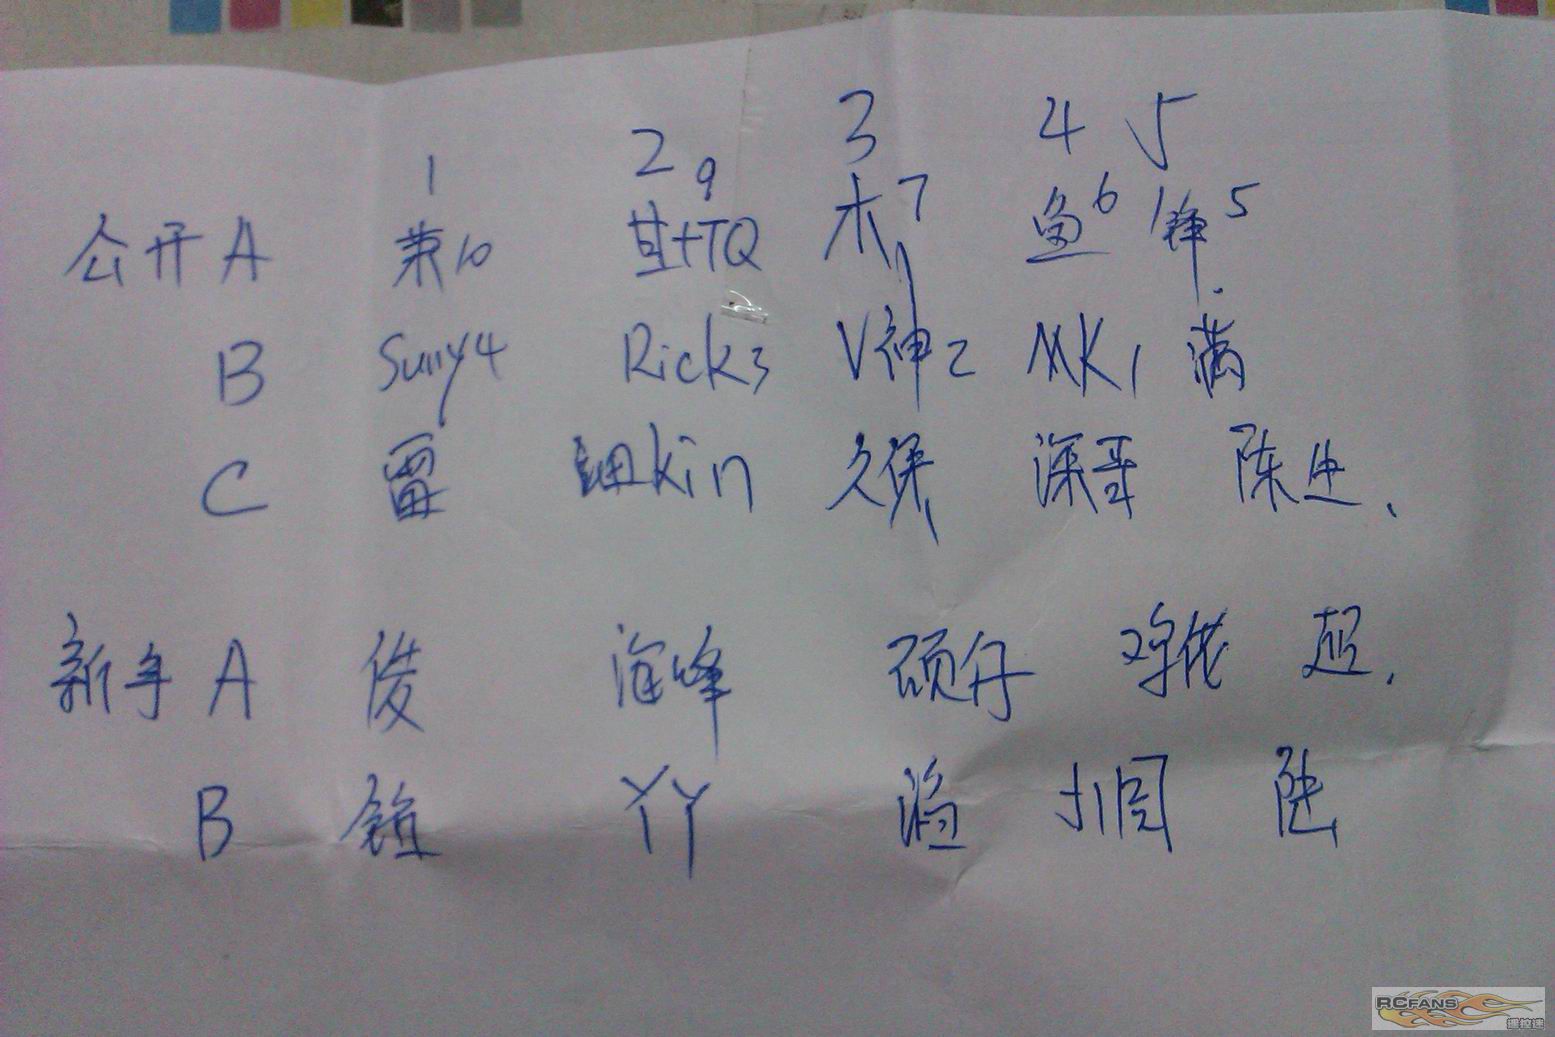 1 2 3 4 5
公开 A 荣10 甘+TQ 9 木 7 鱼 6 锋 5
B Suny4 Rick3 V神2 MK1 满
C 雷 Kin 久保 深哥 陈生.
新手 A 俊 海峰 硕仔 鸡佬 超.
B 丫丫 滔 陆
RCFANS
遥控迷